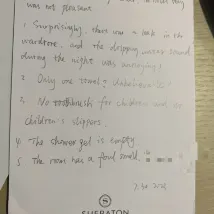 was not pleasant.
1. Surprisingly, there was a leak in the
wardrobe, and the dripping water sound
during the night was annoying!
2. Only one towel? Unbelievable!
3. No toothbrush for children, nor
children's slippers.
4. The shower gel is empty.
5. The room has a foul smell.
S
SHERATON